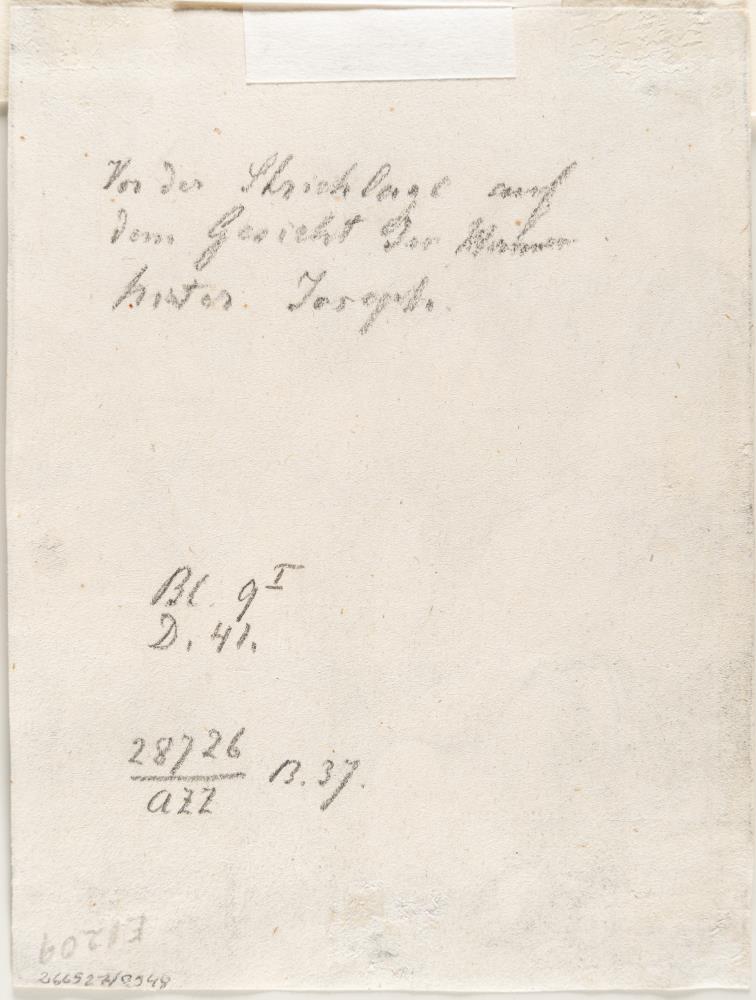 Vor der Strichlage auf
dem Gesicht der Männer
hinter Joseph.
Bl. 9 I
D. 41.
28726
azz
B. 37.
E1209